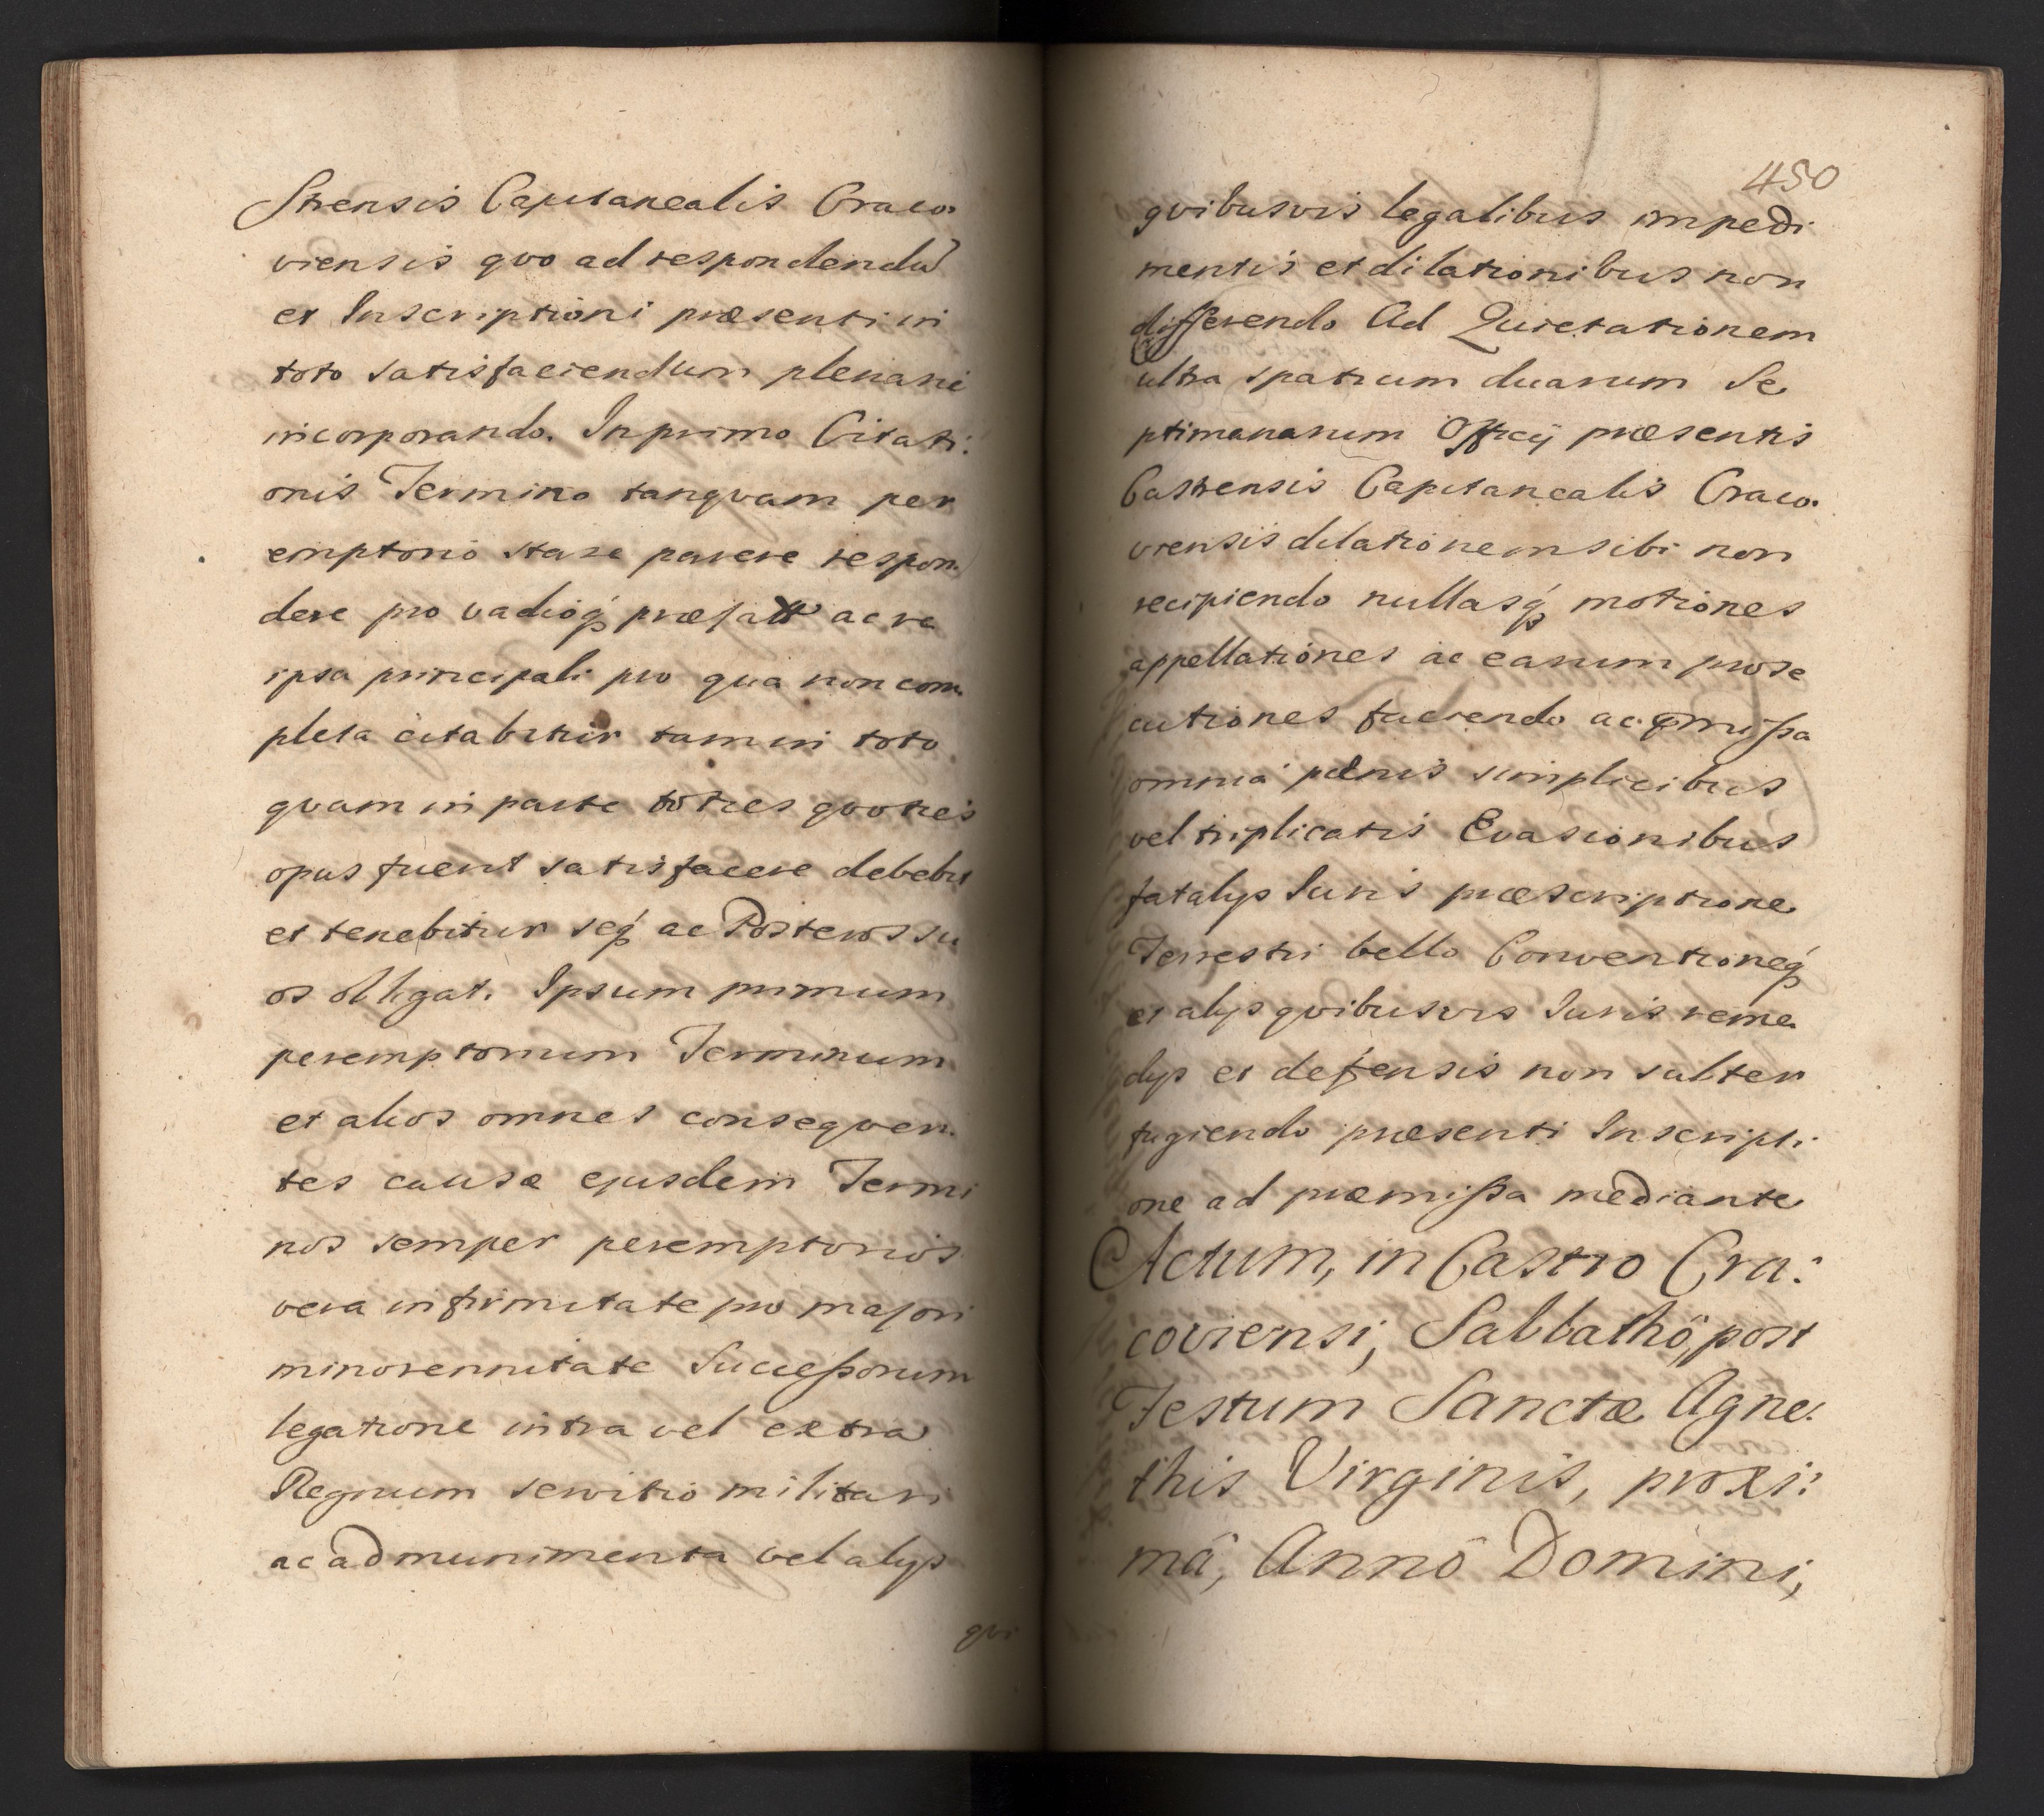 Strensis Capitanealis Craco:
viensis qvo ad respondendū
et Inscriptioni præsenti in
toto satisfaciendum plenarie
incorporando. In primo Citati:
onis Termino tanqvam per
emptorio stare parere respon:
dere pro vadioq́ꝫ præfato ac re
ipsa principali pro qua non com:
pleta citabitur tam in toto
qvam in parte toties qvoties
opus fuerit satisfacere debebit
et tenebitur seq́ꝫ ac Posteros su
os obligat. Ipsum primum
peremptorium Terminum
et alios omnes conseqven:
tes causæ ejusdem Termi
nos semper peremptorios
vera infirmitate pro majori
minorennitate Successorum
legatione intra vel extra
Regnum servitio militari
ac ad munimenta vel alys
qvi
450
qvibusvis legalibus impedi
mentis et dilationibus non
differendo Ad Quietationem
ultra spatium duarum Se
ptimanarum Officÿ præsentis
Castrensis Capitanealis Craco:
viensis dilationem sibi non
recipiendo nullasq́ꝫ motiones
appellationes ac earum prose
cutiones faciendo ac p̄missa
omnia pœnis simplicibus
vel triplicatis Evasionibus
fatalys Iuris præscriptione
Terrestri bello Conventioneq́ꝫ
et alys qvibusvis Iuris reme
dys et defensis non subter
fugiendo præsenti Inscripti:
one ad præmissa mediante
Actum, in Castro Cra:
coviensi, Sabbathô, post
Festum Sanctæ Agne:
this Virginis, proxi:
mâ, Annô Domini,